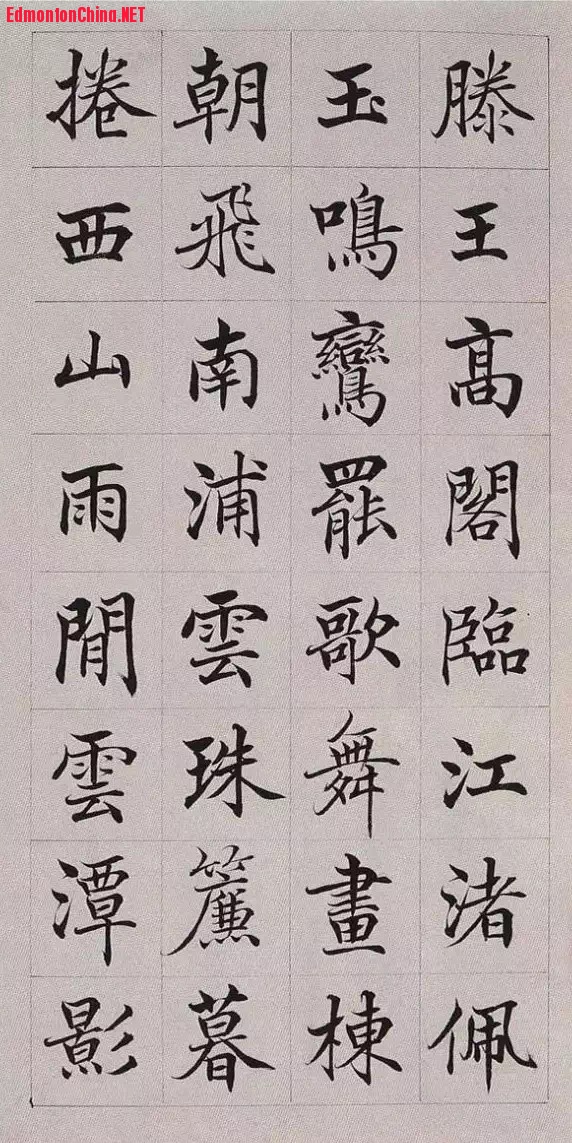 EdmontonChina.NET
滕王高閣臨江渚佩
玉鳴鸞罷歌舞畫棟
朝飛南浦雲珠簾暮
捲西山雨閒雲潭影